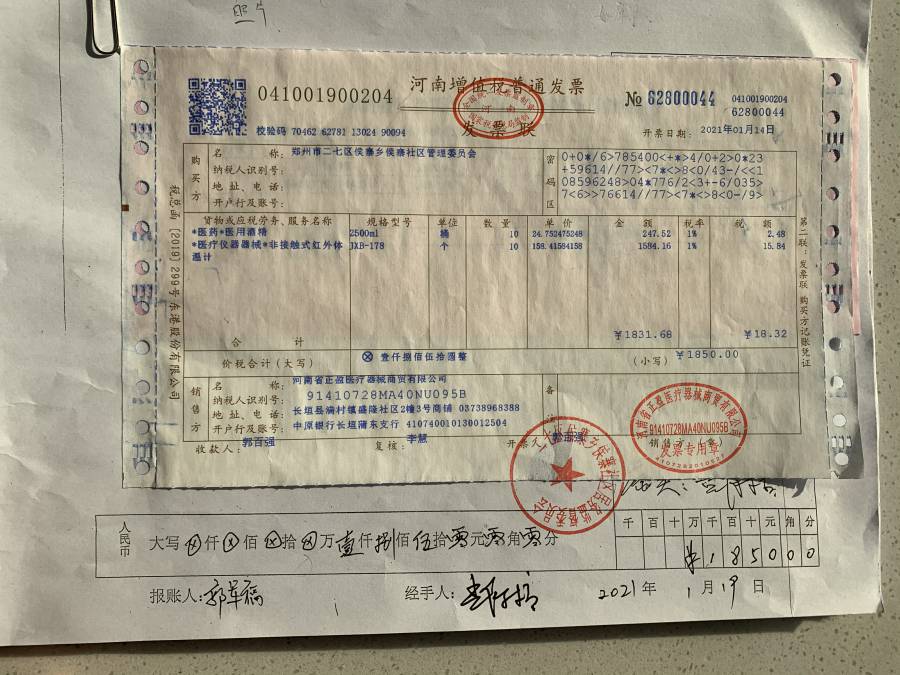 照片
041001900204
河南增值税普通发票
发票联
全国统一发票监制章
河南
国家税务总局监制
№ 62800044
041001900204
62800044
校验码 70462 62781 13024 90094
开票日期: 2021年01月14日
购买方
名 称: 郑州市二七区侯寨乡侯寨社区管理委员会
纳税人识别号:
地址、电话:
开户行及账号:
密码区
0+0*/6>785400<+*>4/0+2>0*23
+59614//77><7*<>8<0/43-/<<1
08596248>04*776/2<3+-6/035>
7<6>>76614//77><7*<>8<0-/9>
货物或应税劳务、服务名称 规格型号 单位 数量 单价 金额 税率 税额
*医药*医用酒精 2500ml 桶 10 24.752475248 247.52 1% 2.48
*医疗仪器器械*非接触式红外体温计 JXB-178 个 10 158.41584158 1584.16 1% 15.84
合 计 ¥1831.68 ¥18.32
价税合计(大写) ⊗ 壹仟捌佰伍拾圆整 (小写) ¥1850.00
销售方
名 称: 河南省正盈医疗器械商贸有限公司
纳税人识别号: 91410728MA40NU095B
地址、电话: 长垣县满村镇盛隆社区2幢3号商铺 03738968388
开户行及账号: 中原银行长垣蒲东支行 410740010130012504
备注
收款人: 郭百强
复核: 李慧
开票人: 郭百强
销售方:(章)
河南省正盈医疗器械商贸有限公司
91410728MA40NU095B
发票专用章
税总函[2019]299号东港股份有限公司
第二联:发票联 购买方记账凭证
人民币
大写⊗仟⊗佰⊗拾⊗万壹仟捌佰伍拾零元零角零分
千 百 十 万 千 百 十 元 角 分
¥ 1 8 5 0 0 0
报账人:
经手人:
2021年 1月19日